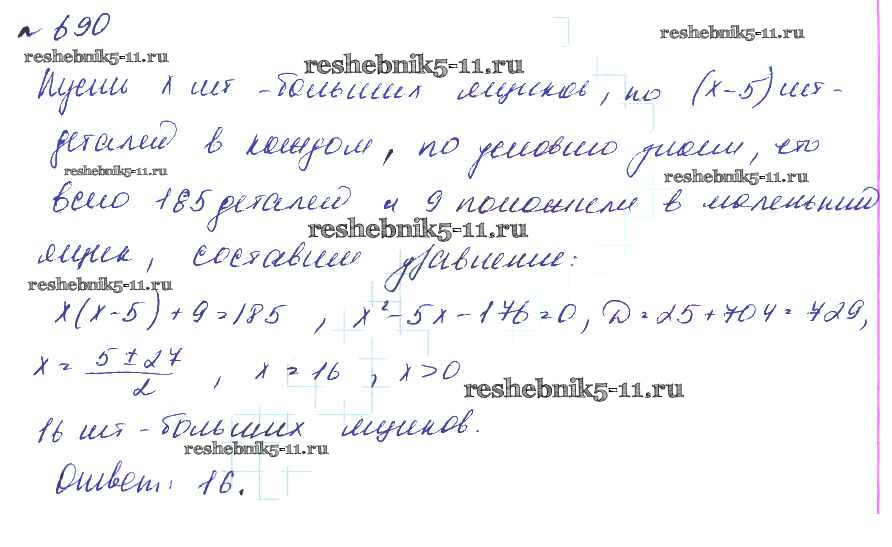 № 690
reshebnik5-11.ru
reshebnik5-11.ru
reshebnik5-11.ru
Пусть x шт - больших ящиков, по (x-5) шт-
деталей в каждом, по условию знаем, что
reshebnik5-11.ru
reshebnik5-11.ru
всего 185 деталей и 9 положили в маленький
reshebnik5-11.ru
ящик, составим уравнение:
reshebnik5-11.ru
x(x-5)+9=185, x²-5x-176=0, D=25+704=729,
x = (5 ± 27)/2, x = 16, x > 0
reshebnik5-11.ru
16 шт - больших ящиков.
reshebnik5-11.ru
Ответ: 16.